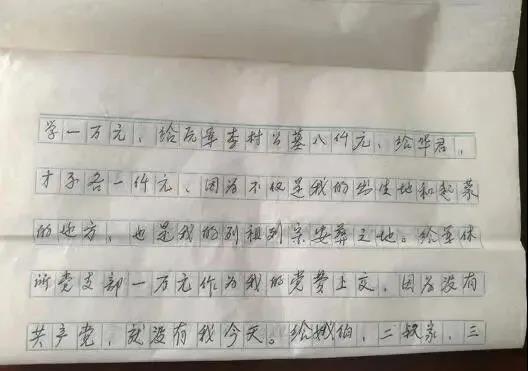 学一万元、给瓦窑李村公墓八仟元、给华君、
才子各一仟元、因为不仅是我的出生地和起
的地方、也是我的列祖列宗安葬之地。给军休
所党支部一万元作为我的党费上交、因为没有
共产党,就没有我今天。给娥伯,二叔家,三